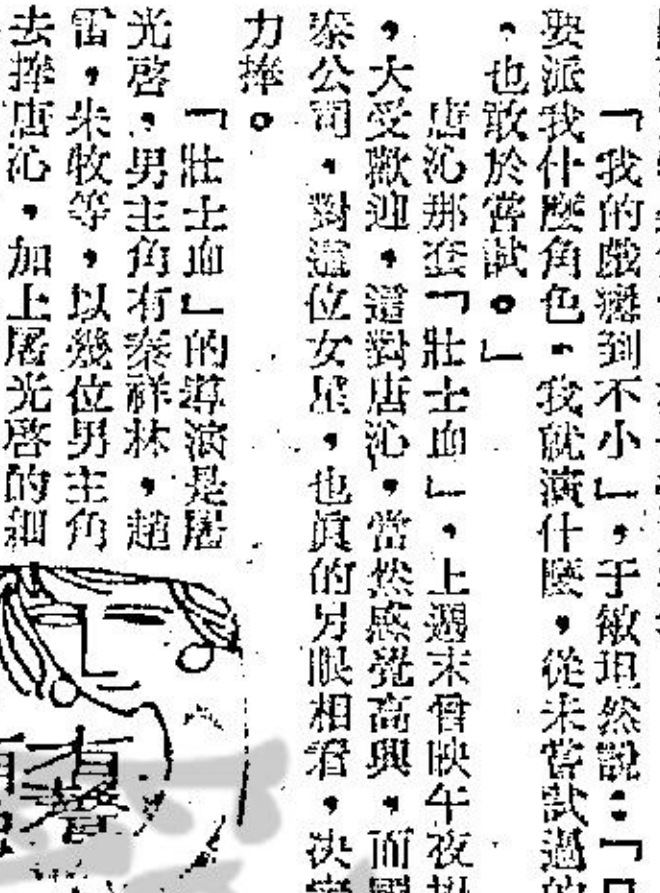 「我的戲癮到不小」，于敏坦然說：「
要派我什麼角色，我就演什麼，從未嘗試過的
，也敢於嘗試。」
唐沁那套「壯士血」，上週末曾映午夜場
，大受歡迎，這對唐沁，當然感覺高興，而國
泰公司，對這位女星，也眞的另眼相看，決定
力捧。
「壯士血」的導演是屠
光啓，男主角有秦祥林，趙
雷，朱牧等，以幾位男主角
去捧唐沁，加上屠光啓的細
有聲